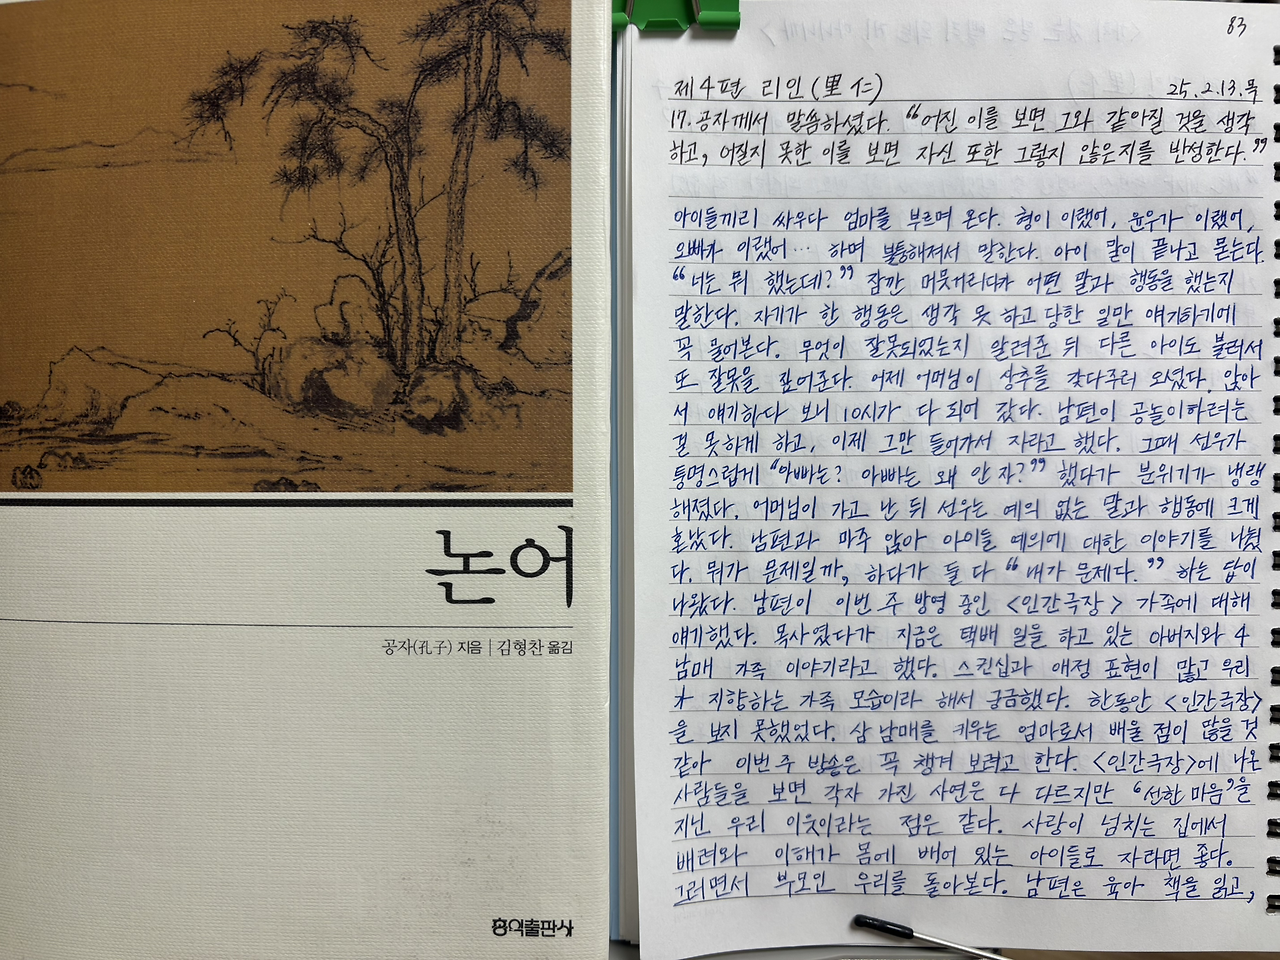 논어
공자(孔子) 지음 | 김형찬 옮김
홍익출판사
83
제4편 리인(里仁) 25.2.13.목
17. 공자께서 말씀하셨다. "어진 이를 보면 그와 같아질 것을 생각
하고, 어질지 못한 이를 보면 자신 또한 그렇지 않은지를 반성한다."
아이들끼리 싸우다 엄마를 부르며 온다. 형이 이랬어, 윤우가 이랬어,
오빠가 이랬어… 하며 불통해져서 말한다. 아이 말이 끝나고 묻는다.
"너는 뭐 했는데?" 잠깐 머뭇거리다가 어떤 말과 행동을 했는지
말한다. 자기가 한 행동은 생각 못 하고 당한 일만 얘기하기에
꼭 물어본다. 무엇이 잘못되었는지 알려준 뒤 다른 아이도 불러서
또 잘못을 짚어준다. 어제 어머님이 상추를 갖다주러 오셨다. 앉아
서 얘기하다 보니 10시가 다 되어 갔다. 남편이 공놀이하려는
걸 못하게 하고, 이제 그만 들어가서 자라고 했다. 그때 선우가
퉁명스럽게 "아빠는? 아빠는 왜 안 자?" 했다가 분위기가 냉랭
해졌다. 어머님이 가고 난 뒤 선우는 예의 없는 말과 행동에 크게
혼났다. 남편과 마주 앉아 아이들 예의에 대한 이야기를 나눴
다. 뭐가 문제일까, 하다가 둘 다 "내가 문제다." 하는 답이
나왔다. 남편이 이번 주 방영 중인 <인간극장> 가족에 대해
얘기했다. 목사였다가 지금은 택배 일을 하고 있는 아버지와 4
남매 가족 이야기라고 했다. 스킨십과 애정 표현이 많고 우리
가 지향하는 가족 모습이라 해서 궁금했다. 한동안 <인간극장>
을 보지 못했었다. 삼 남매를 키우는 엄마로서 배울 점이 많을 것
같아 이번 주 방송은 꼭 챙겨 보려고 한다. <인간극장>에 나온
사람들을 보면 각자 가진 사연은 다 다르지만 "선한 마음"을
지닌 우리 이웃이라는 점은 같다. 사랑이 넘치는 집에서
배려와 이해가 몸에 배어 있는 아이들로 자라면 좋다.
그러면서 부모인 우리를 돌아본다. 남편은 육아 책을 읽고,